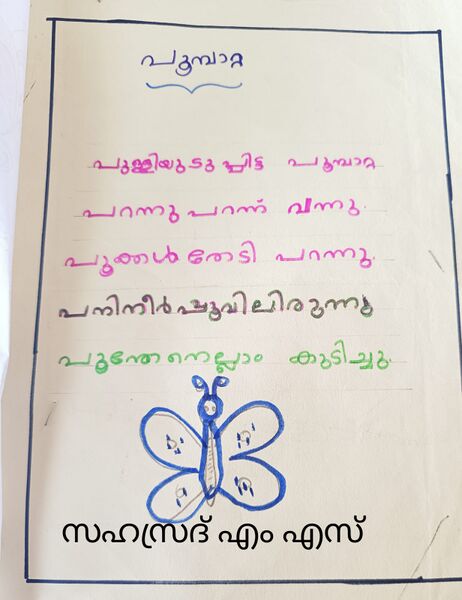 പൂമ്പാറ്റ
പുള്ളിയുടുപ്പിട്ട പൂമ്പാറ്റ
പറന്നു പറന്ന് വന്നു.
പൂക്കൾ തേടി പറന്നു.
പനിനീർപ്പൂവിലിരുന്നു
പൂന്തേനെല്ലാം കുടിച്ചു.
സഹസ്രദ് എം എസ്